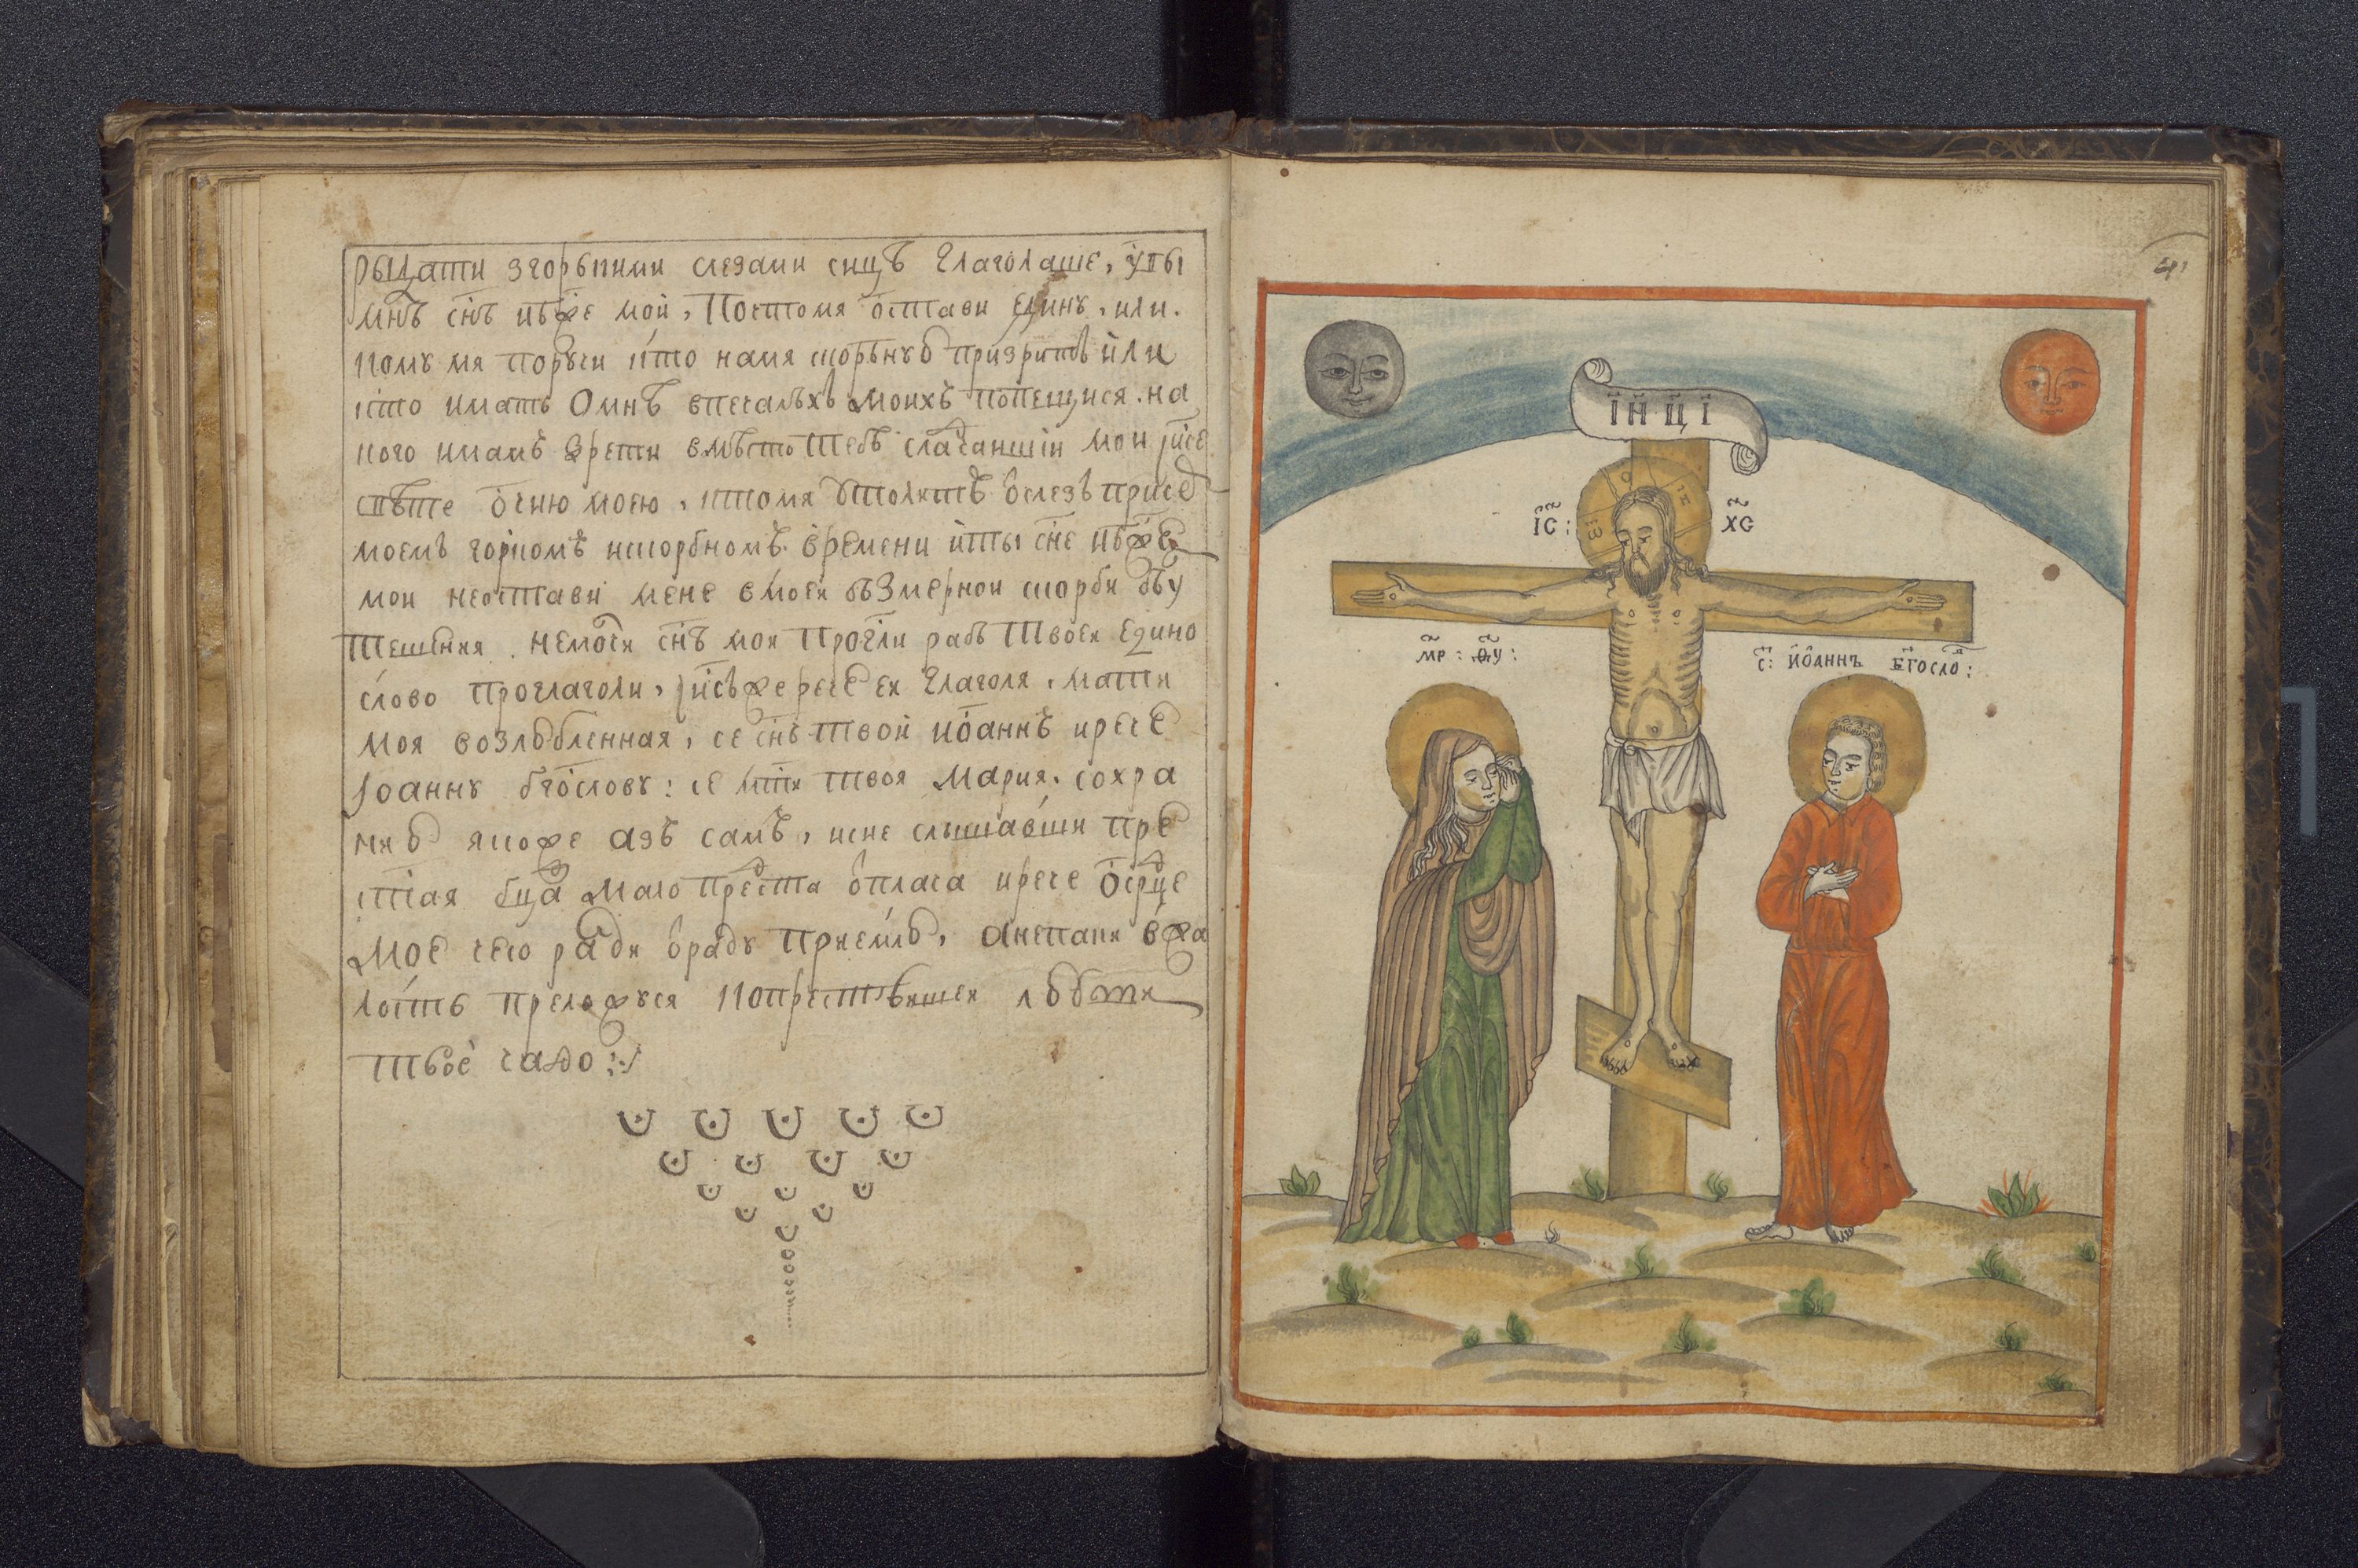 рыдати згорькими слезами сицъ глаголаше, увы
мнѣ сн҃ъ ибж҃е мой, Почтомя остави едину, или.
кому мя поручи кто намя скорбную призритъ или
кто имать Омнѣ впечалѣхъ моихъ попещися. на
кого имамъ зрети вмѣсто тебѣ сладчаншіи мои іисе
свѣте очию моею, ктомя утолитъ ослезъ
моемъ горкомъ искорбномъ времени иты сн҃е ибж҃е
мои неостави мене вмоеи бѣзмернои скорби
тешения. немоги сн҃ъ мои рабѣ твоеи едино
слово проглаголи, іисъ же рече еи глаголя, мати
моя возлюбленная, се сн҃ъ твой иоаннъ ирече
Іоанну бг҃ослову: се мт҃и твоя Мария. сохра
няю якоже азъ самъ, исие слышавши пре
ст҃ая бц҃а мало преста оплача ирече Осрдце
мое чего ради враду приемлю, апепаки вжа
лость преложуся люботи
твое чадо:
ІНЦІ
ІС: ХС
О Н
МР: ѲУ:
С: ИОАННЪ БГОСЛО:
41